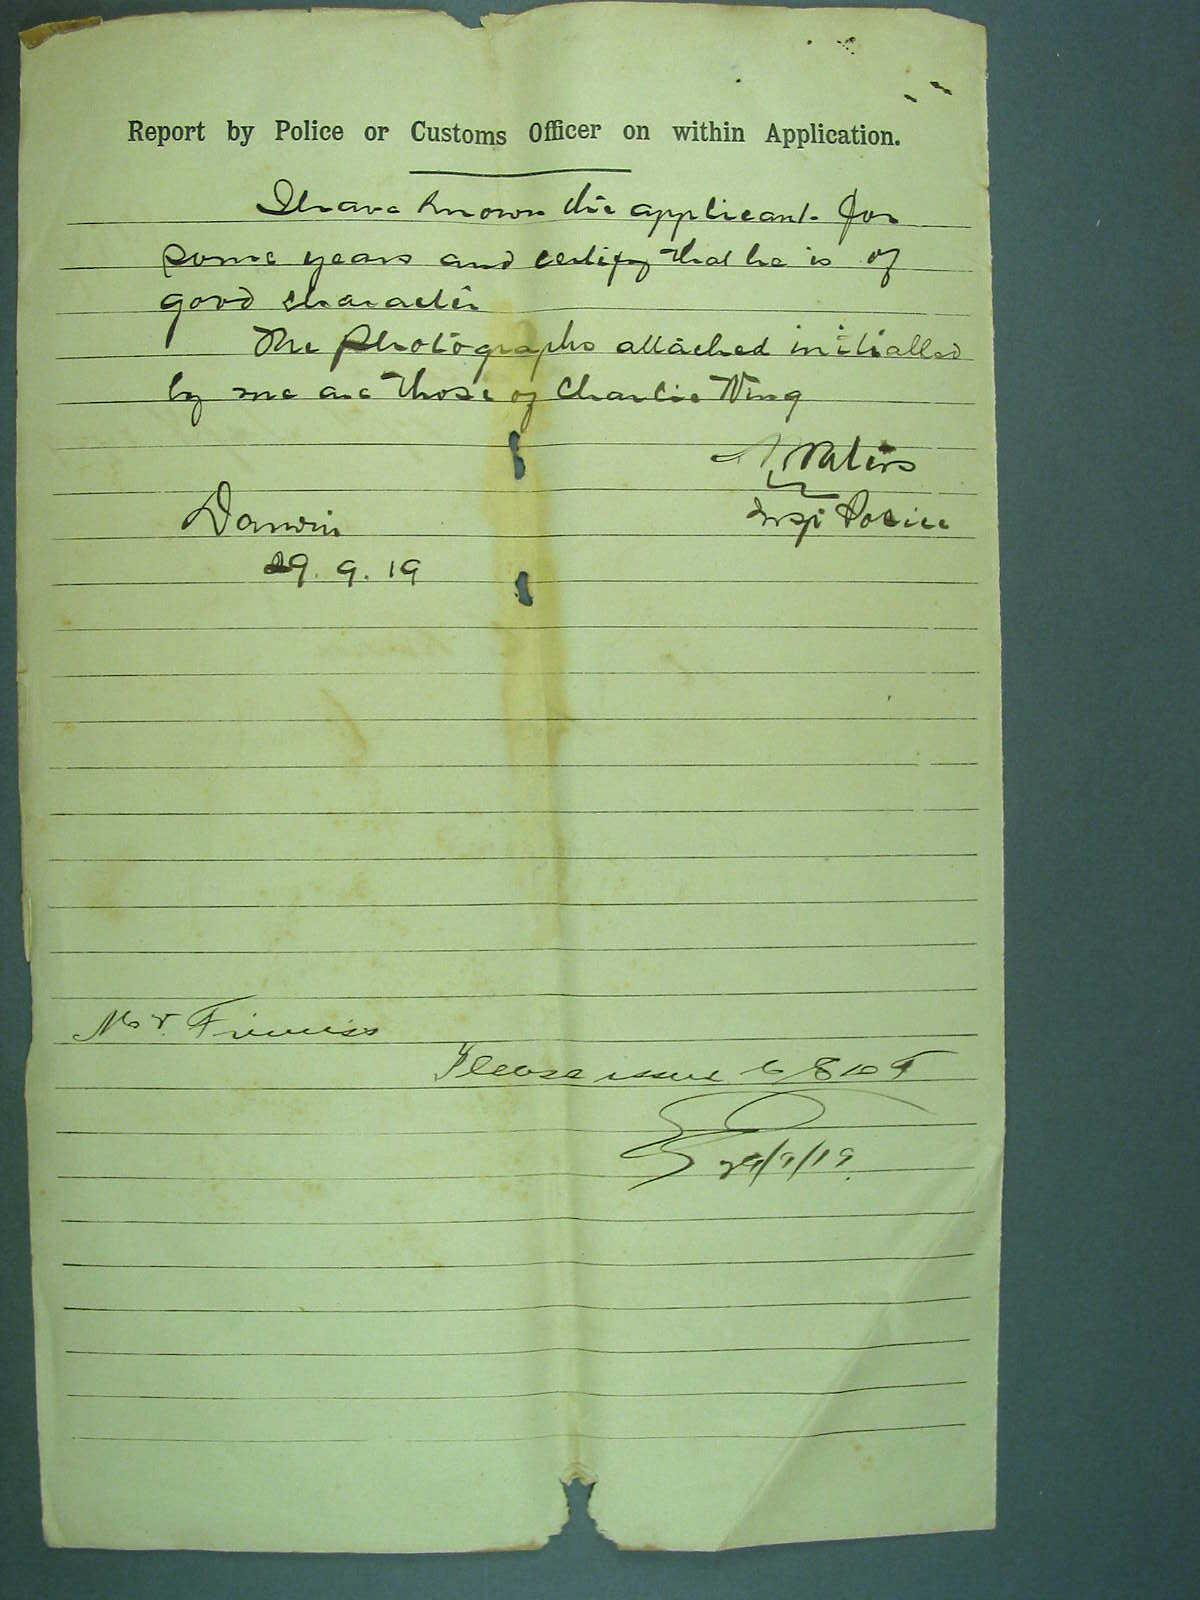 Report by Police or Customs Officer on within Application.
I have known the applicant for
some years and certify that he is of
good character
The photographs attached initialled
by me are those of Charlie Wing
N Waters
Insp Police
Darwin
29. 9. 19
Mr. Finniss
Please issue
29/9/19.